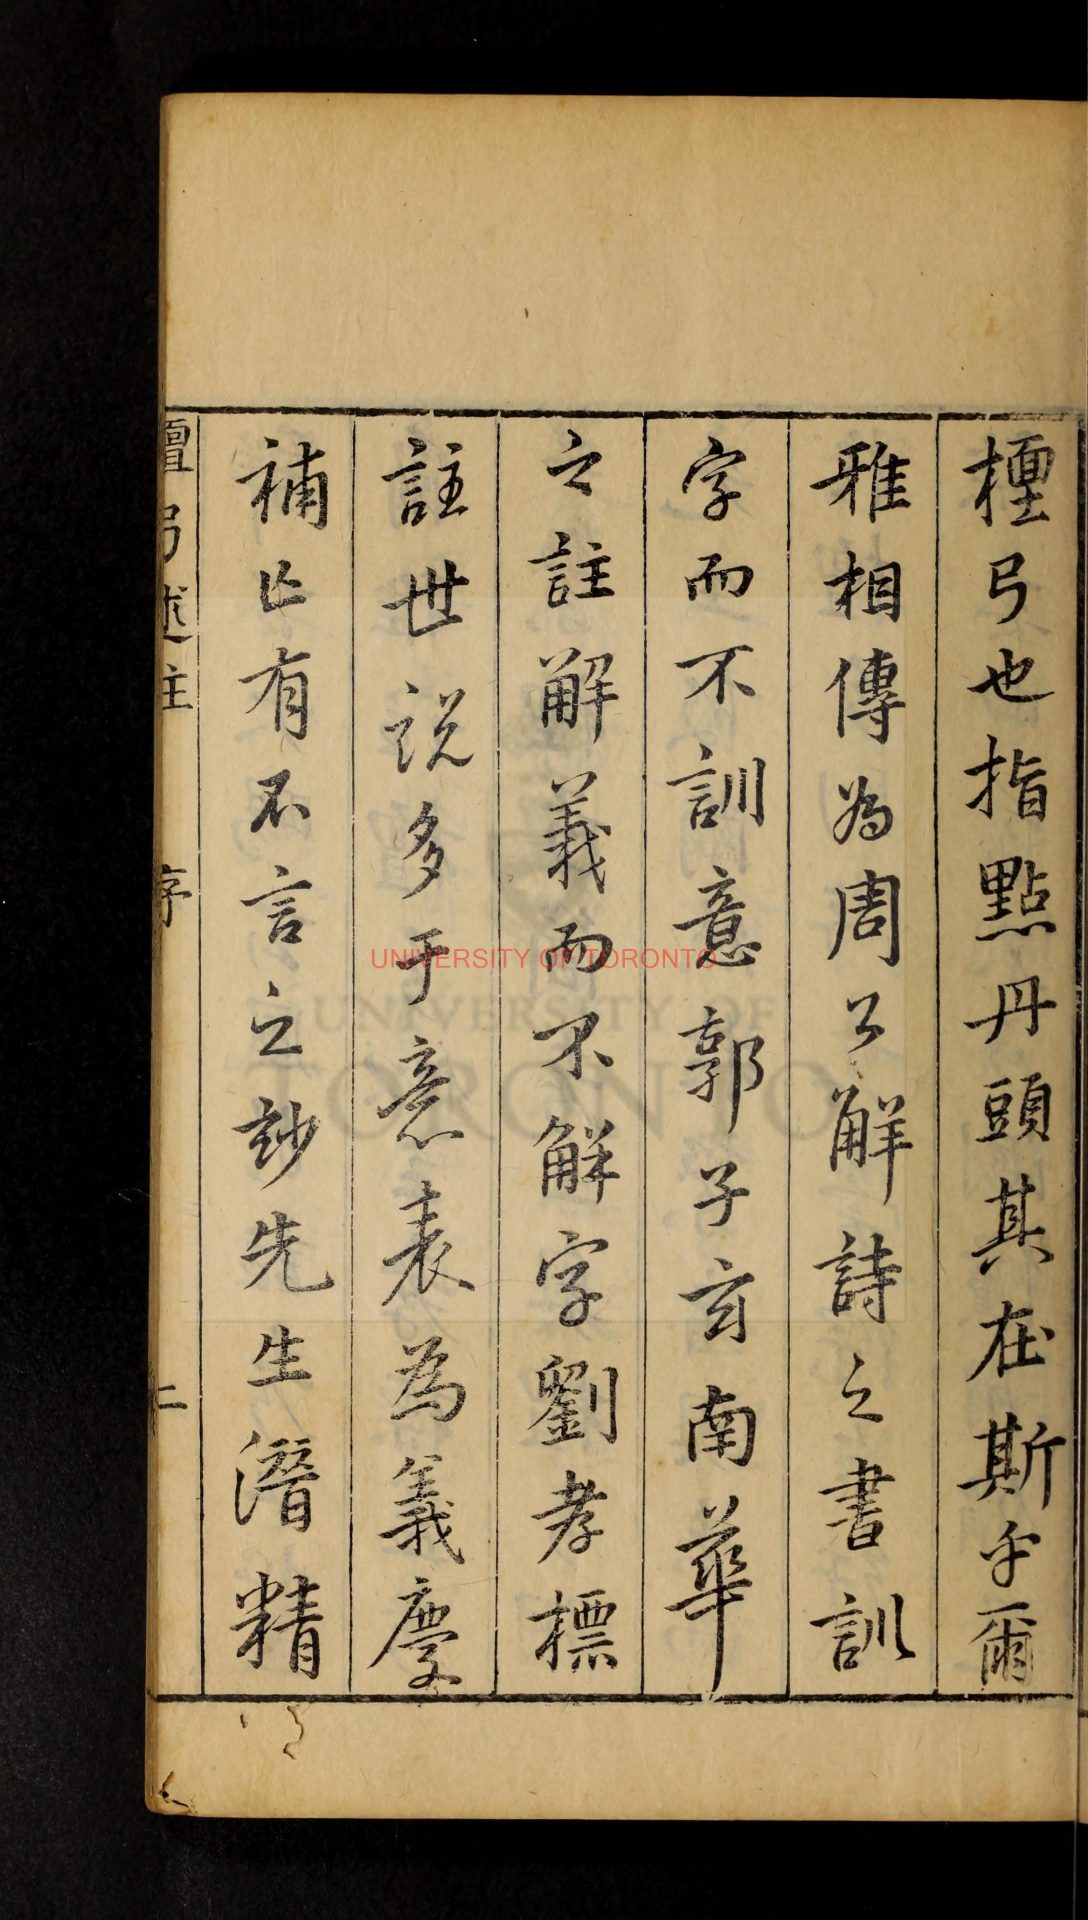 檀弓也指點丹頭其在斯乎爾
雅相傳為周公解詩之書訓
字而不訓意郭子玄南華
之註解義而不解字劉孝標
註世說多于意表為義慶
補亡有不言之玅先生潛精
檀弓述注 序 二
UNIVERSITY OF TORONTO
UNIVERSITY OF
TORONTO